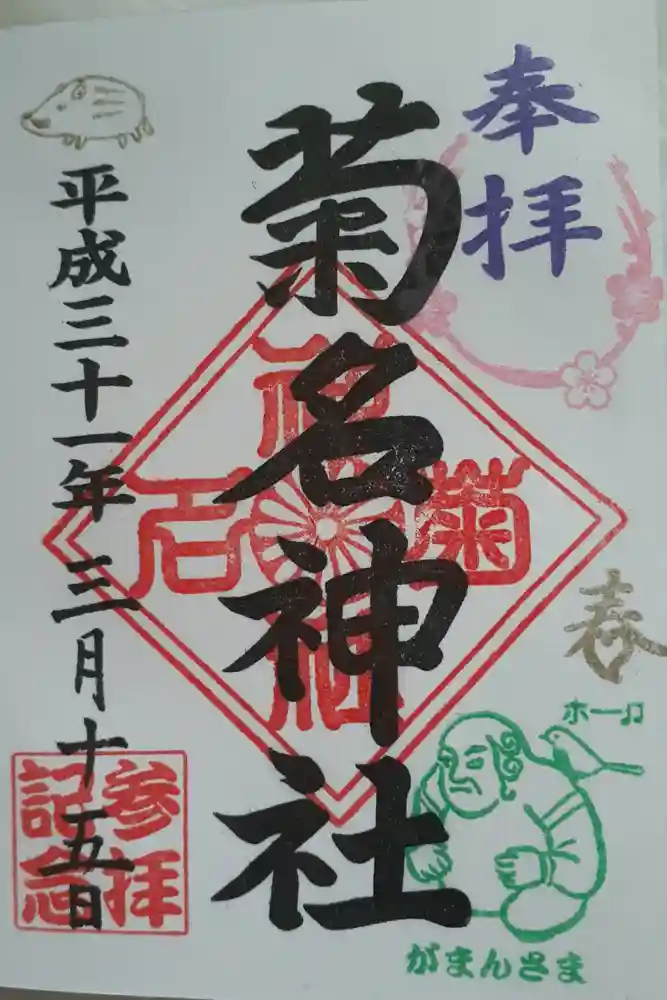 奉拝
菊名神社
菊名神社
春
ホー♫
がまんさま
平成三十一年 三月十五日
参拝
記念